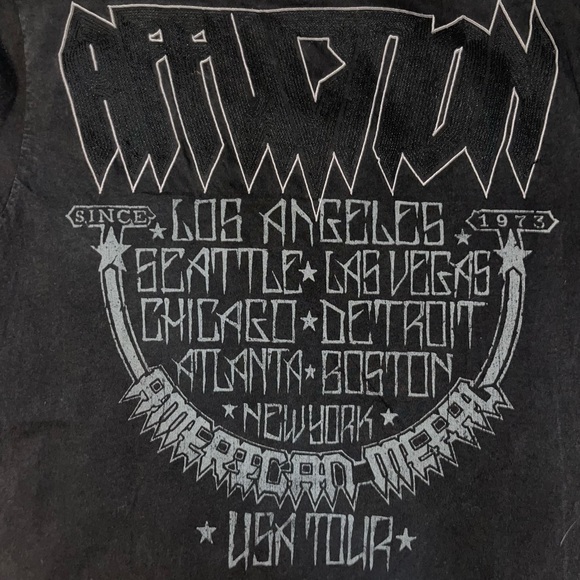 AFFLICTION
SINCE 1973
LOS ANGELES
SEATTLE ★ LAS VEGAS
CHICAGO ★ DETROIT
ATLANTA ★ BOSTON
★ NEW YORK ★
AMERICAN METAL
★ USA TOUR ★